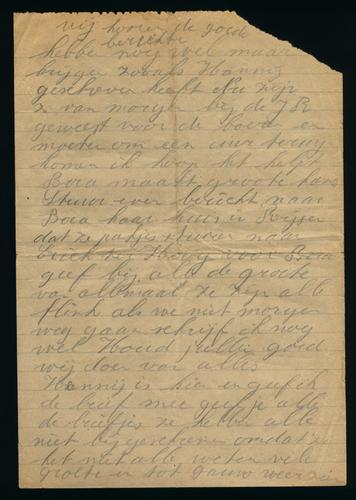 wij hooren de goede
berichten
hebbe nog wel maar
brijgen zooals Hannij
geschreven heeft Nu zijn
z van morgen bij de J R
geweest voor de Boca en
moeten om een uur terug
komen ik hoop het helpt
Boca maakt groote kans
Stuur even bericht naar
Boca haar huis in
dat ze pakjes sturen naar
voor Boca
geef bij alle de groete
van allemaal ze zijn alle
flink als we niet morgen
weg gaan schrijf ik nog
wel Houd jullie goed
wij doen van alles
Hannij is hier en geef ik
de brief mee geef je alle
de briefjes ze hebbe alle
niet bijgeschreven omdat ze
het niet alle weten vele
groete en tot gauw weerzien